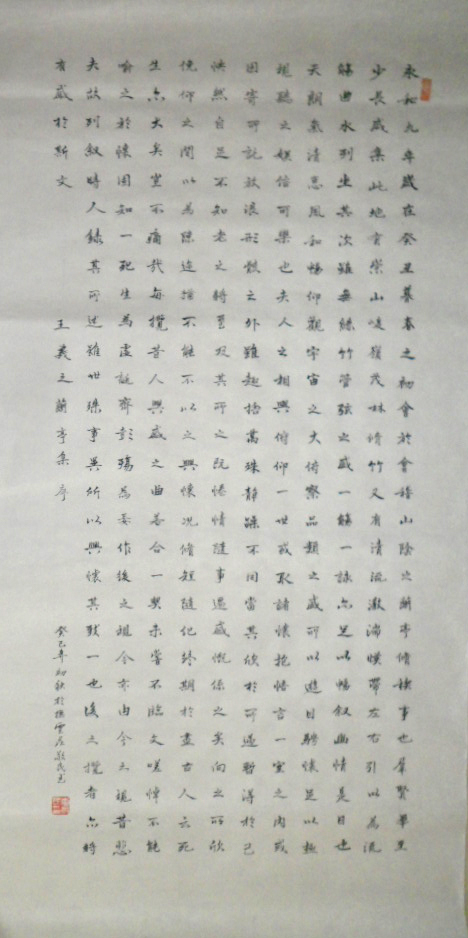 永和九年歲在癸丑暮春之初會於會稽山陰之蘭亭脩稧事也羣賢畢至
少長咸集此地有崇山峻嶺茂林脩竹又有清流激湍暎帶左右引以為流
觴曲水列坐其次雖無絲竹管弦之盛一觴一詠亦足以暢敘幽情是日也
天朗氣清惠風和暢仰觀宇宙之大俯察品類之盛所以遊目騁懷足以極
視聽之娛信可樂也夫人之相與俯仰一世或取諸懷抱悟言一室之內或
因寄所託放浪形骸之外雖趣捨萬殊靜躁不同當其欣於所遇暫得於己
怏然自足不知老之將至及其所之既惓情隨事遷感慨係之矣向之所欣
俛仰之間以為陳迹猶不能不以之興懷況脩短隨化終期於盡古人云死
生亦大矣豈不痛哉每攬昔人興感之由若合一契未嘗不臨文嗟悼不能
喻之於懷固知一死生為虛誕齊彭殤為妄作後之視今亦由今之視昔悲
夫故列敘時人錄其所述雖世殊事異所以興懷其致一也後之攬者亦將
有感於斯文 王羲之蘭亭集序
癸巳年初秋於